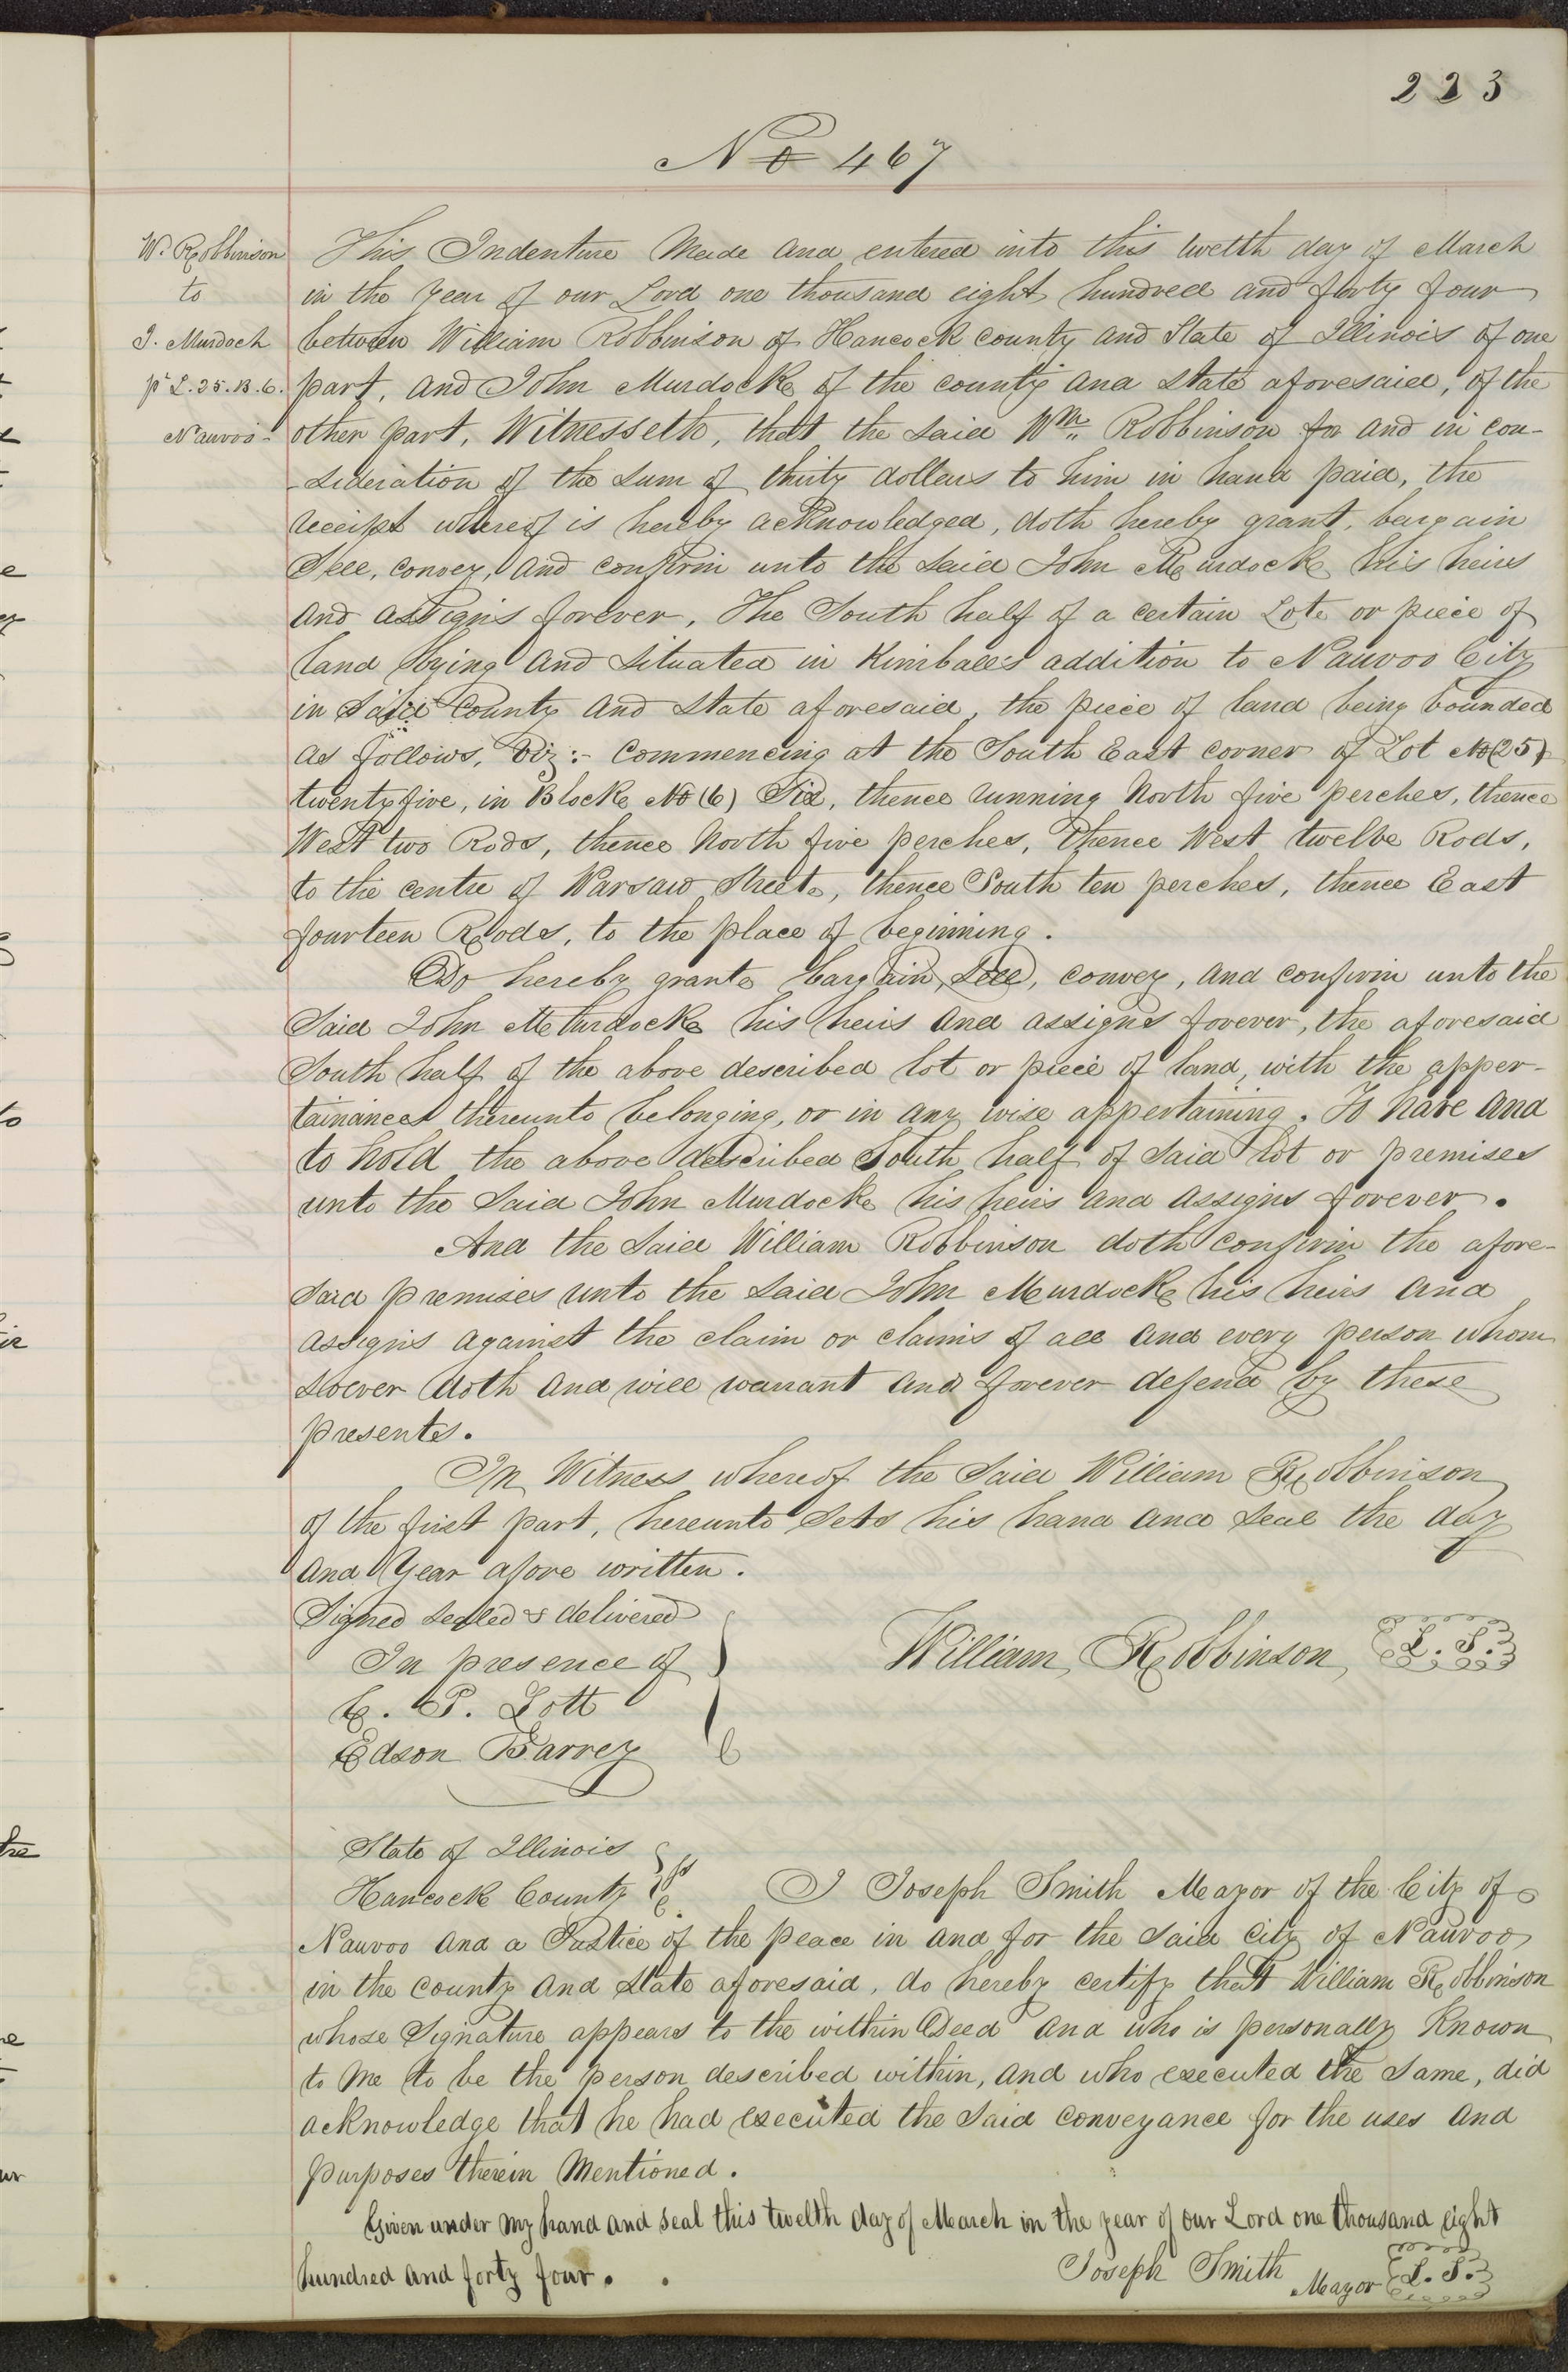 223
No 467
W. Robbinson
to
J. Murdoch
pt L. 25. B. 6.
Nauvoo-
This Indenture Made and entered into this twelth day of March
in the year of our Lord one thousand eight hundred and forty four
between William Robbinson of Hancock county and State of Illinois of one
part, and John Murdock of the county and state aforesaid, of the
other part, Witnesseth, that the said Wm. Robbinson for and in con-
-sideration of the sum of thirty dollars to him in hand paid, the
receipt whereof is hereby acknowledged, doth hereby grant, bargain
Sell, convey, and confirm unto the said John Murdock his heirs
and assigns forever, The South half of a certain Lot or piece of
land lying and situated in Kimball's addition to Nauvoo City
in said County and State aforesaid, the piece of land being bounded
as follows, Viz:- Commencing at the South East corner of Lot No (25)
twenty five, in Block No (6) Six, thence running North five perches, thence
West two Rods, thence North five perches, thence West twelve Rods,
to the centre of Warsaw Street, thence South ten perches, thence East
fourteen Rods, to the place of beginning.
Do hereby grant bargain, sell, convey, and confirm unto the
Said John Murdock his heirs and assigns forever, the aforesaid
South half of the above described lot or piece of land, with the apper-
tainances thereunto belonging, or in any wise appertaining. To have and
to hold the above described South half of said lot or premises
unto the said John Murdock his heirs and assigns forever.
And the said William Robbinson doth confirm the afore-
said premises unto the said John Murdock his heirs and
assigns against the claim or claims of all and every person whom
soever doth and will warrant and forever defend by these
presents.
In Witness whereof the said William Robbinson
of the first part, hereunto sets his hand and seal the day
and Year afore written.
Signed sealed & delivered
In presence of
C. P. Lott
Edson Barrey
William Robbinson L. S.
State of Illinois
Hancock County ss I Joseph Smith Mayor of the City of
Nauvoo and a Justice of the peace in and for the said city of Nauvoo
in the county and State aforesaid, do hereby certify that William Robbinson
whose Signature appears to the within Deed and who is personally known
to me to be the person described within, and who executed the same, did
acknowledge that he had executed the said conveyance for the uses and
purposes therein Mentioned.
Given under my hand and seal this twelth day of March in the year of our Lord one thousand eight
hundred and forty four.
Joseph Smith Mayor L. S.